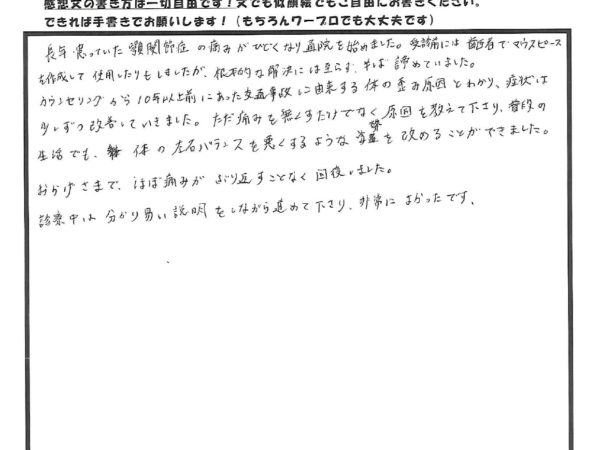 感想文の書き方は一切自由です！文でも似顔絵でもご自由にお書きください。
できれば手書きでお願いします！（もちろんワープロでも大丈夫です）
長年患っていた 顎関節症 の痛みがひどくなり通院を始めました。受診前には 歯医者で マウスピース
を作成して 使用したりもしましたが、根本的な解決には至らず、半ば 諦めていました。
カウンセリングから 10年以上前にあった交通事故に由来する 体の歪み原因とわかり、症状は
少しずつ改善していきました。ただ痛みを無くすだけでなく 原因を教えて下さり、普段の
生活でも、体の左右バランスを悪くするような 姿勢を改めることができました。
おかげさまで、ほぼ痛みが ぶり返すことなく 回復しました。
診察中は 分かり易い説明をしながら進めて下さり、非常によかったです。